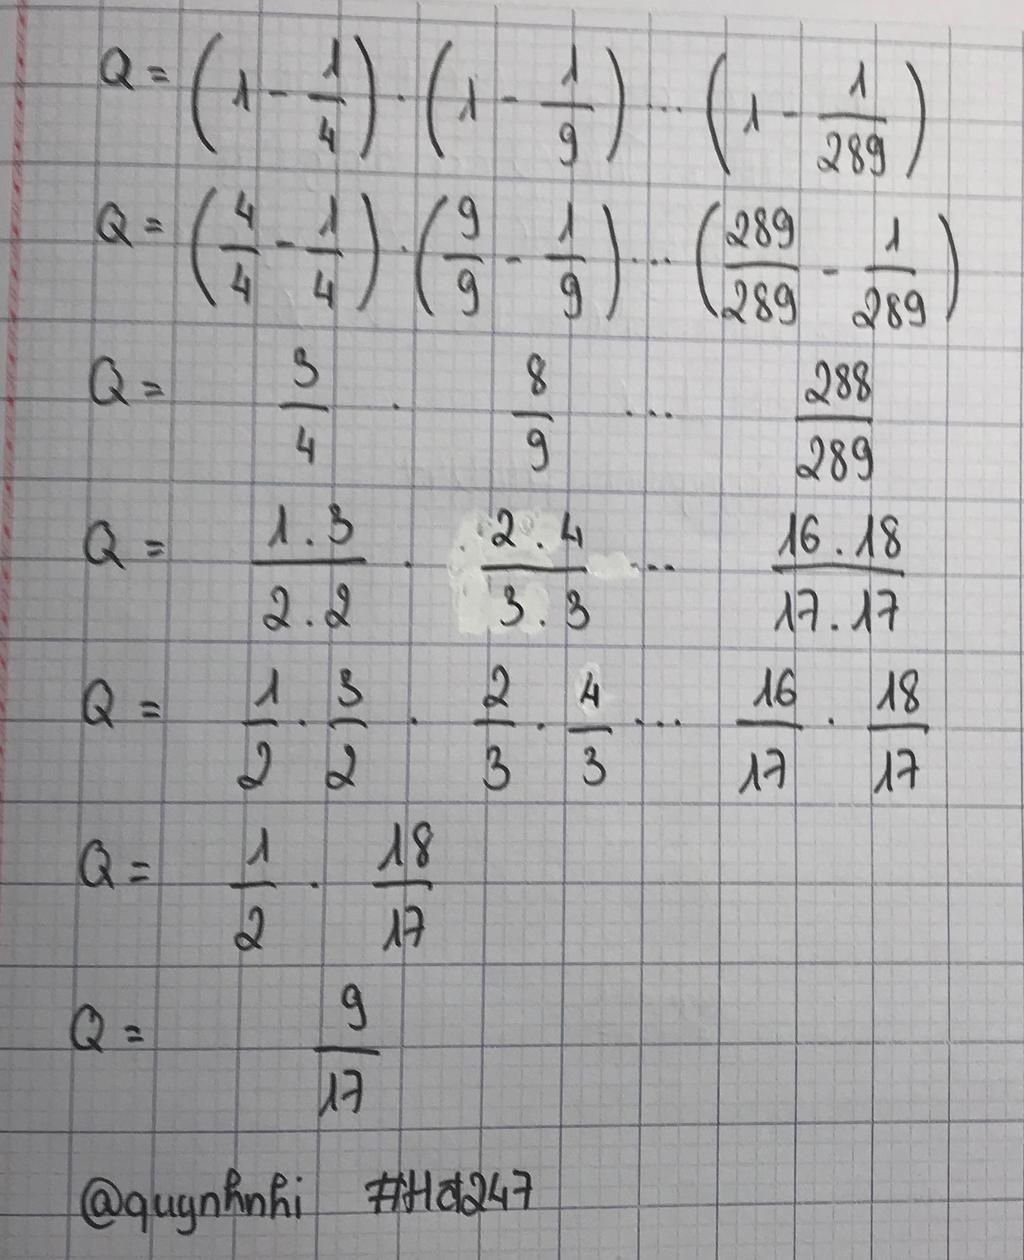 Q = (1 - 1/4) . (1 - 1/9) ... (1 - 1/289)
Q = (4/4 - 1/4) . (9/9 - 1/9) ... (289/289 - 1/289)
Q = 3/4 . 8/9 ... 288/289
Q = 1.3/2.2 . 2.4/3.3 ... 16.18/17.17
Q = 1/2 . 3/2 . 2/3 . 4/3 ... 16/17 . 18/17
Q = 1/2 . 18/17
Q = 9/17
@quynhnhi #Hd247